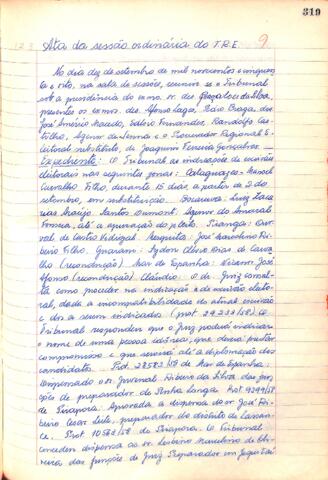 319
Ata da sessão ordinária do T.R.E. 9.
No dia dez de setembro de mil novecentos e cinquenta
e oito, na sala de sessões, reuniu-se o Tribunal
sob a presidência do exmo. sr. des. da Silva,
presentes os exmos. des. Afonso Lages, Pedro Braga, drs.
José Américo Macedo, Edésio Fernandes, Randolfo
e o Procurador Regional E-
leitoral substituto, dr. Joaquim Ferreira Gonçalves.
Expediente: O Tribunal as indicações de escrivães
eleitorais nas seguintes zonas: Cataguazes:
Carvalho Filho, durante 15 dias, a partir de 2 do
setembro, em substituição. Bocaiuva: Luiz
Araújo. Santos Dumont: do Amaral
Franca, até a apuração do pleito. Piranga:
de Castro Vidigal. Mesquita: José Marcelino Ri-
beiro Filho. Guarani: Alves Dias de Carva-
lho (recondução). Mar de Espanha: José
Afonso (recondução). Cláudio: O dr. Juiz consul-
ta como proceder na indicação de escrivão eleito-
ral, dada a incompatibilidade do atual escrivão
e dos a serem indicados (prot. 29.233/58). O
Tribunal respondeu que o Juiz poderá indicar
o nome de uma pessoa idônea, que deverá prestar
compromisso e que servirá até a diplomação dos
candidatos. Prot. 28583/58 de Mar de Espanha:
o sr. Juvenal Ribeiro da Silva das fun-
ções de preparador de Ponte Longa. Prot. 9299/58
de Pirapora. Aprovada a dispensa do sr. José Ri-
beiro Cesar Leite, preparador do distrito de Lassan-
ce. Prot. 10582/58 de Pirapora. O Tribunal
concedeu dispensa ao sr. Marcelino de Oli-
veira das funções de Juiz Preparador em